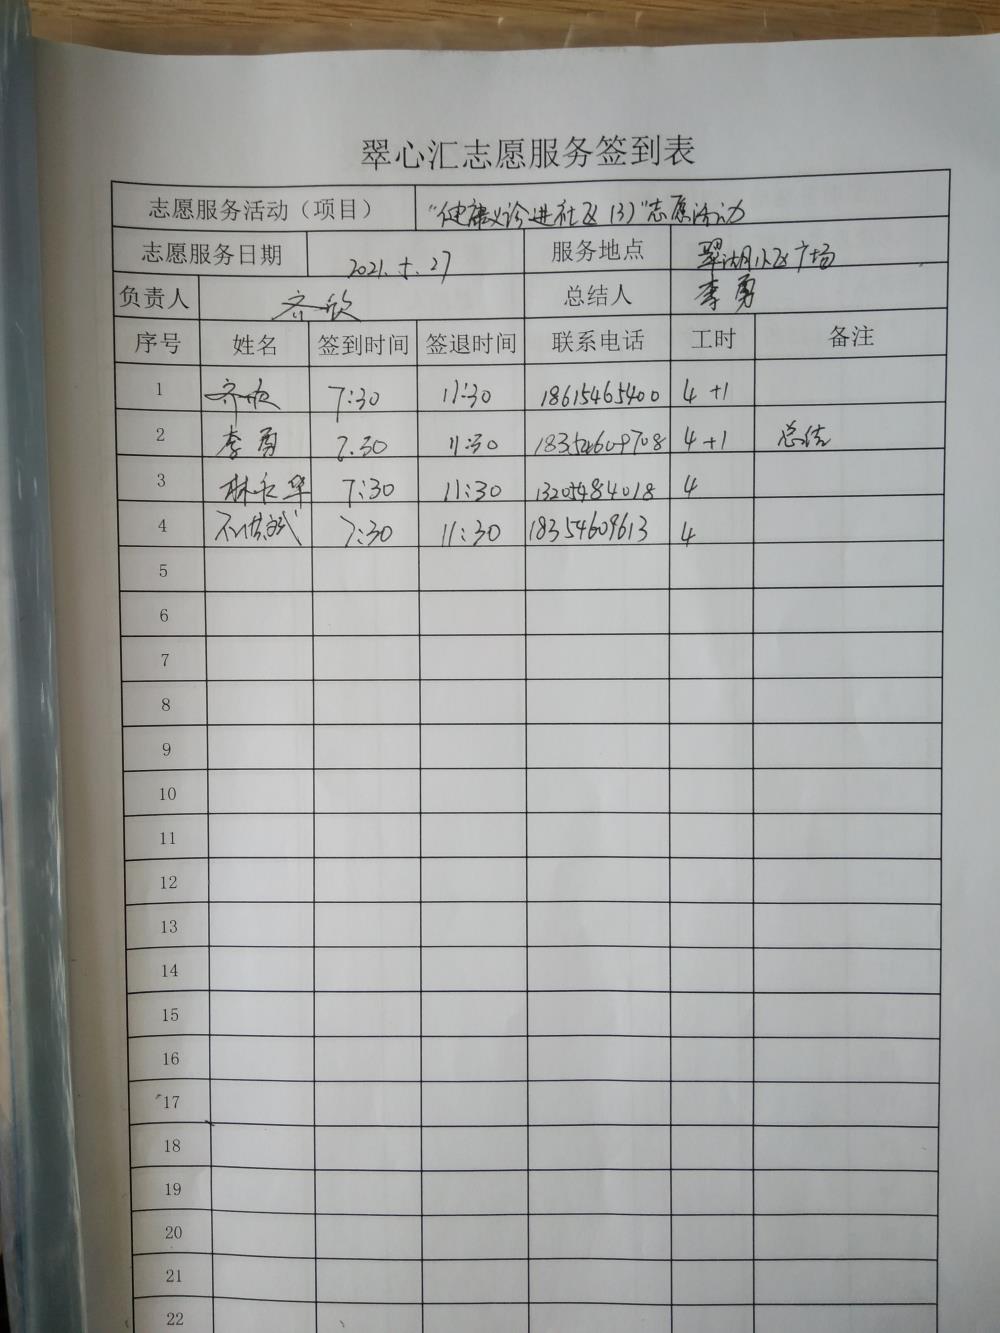 翠心汇志愿服务签到表
志愿服务活动（项目） "健康义诊进社区(3)"志愿活动
志愿服务日期 2021.5.27 服务地点 翠湖小区广场
负责人 齐欣 总结人 李勇
序号 姓名 签到时间 签退时间 联系电话 工时 备注
1 齐欣 7:30 11:30 18615465400 4+1
2 李勇 7:30 11:30 18354609708 4+1 总结
3 7:30 11:30 13205484018 4
4 7:30 11:30 18354609613 4
5
6
7
8
9
10
11
12
13
14
15
16
17
18
19
20
21
22